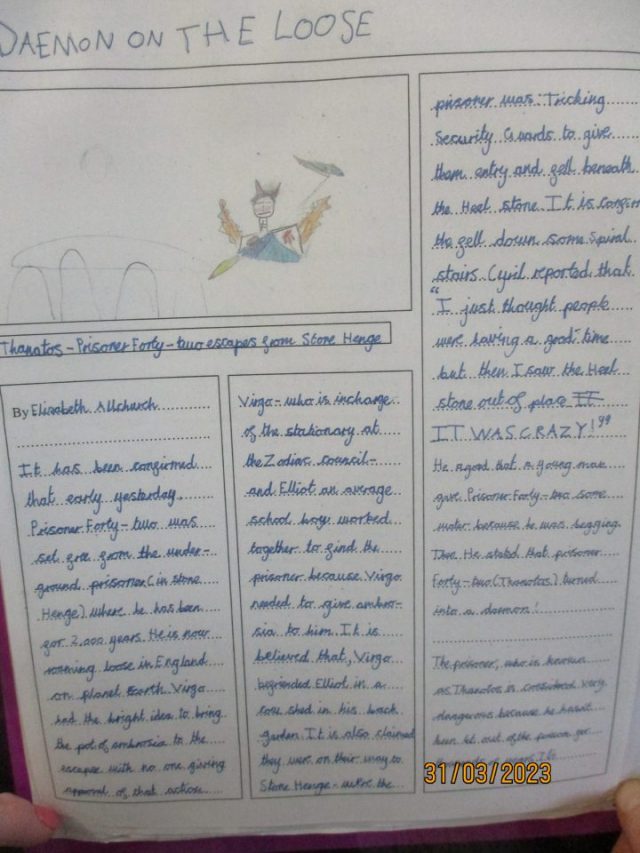 DAEMON ON THE LOOSE
Thanatos - Prisoner Forty - two escapes from Stone Henge
By Elisabeth Allchurch
It has been confirmed
that early yesterday
Prisoner Forty - two was
set free from the under -
ground prisoner (in Stone
Henge) where he has been
for 2,000 years. He is now
roaming loose in England
on planet Earth. Virgo
had the bright idea to bring
the pot of ambrosia to the
escapee with no one giving
approval of that action
Virgo - who is incharge
of the stationary at
the Zodiac council -
and Elliot an average
school boy worked
together to find the
prisoner because Virgo
needed to give ambro -
sia to him. It is
believed that, Virgo
befriended Elliot in a
cow shed in his back
garden. It is also claimed
they were on their way to
Stone Henge - were the
prisoner was. Tricking
Security Guards to give
them entry and fell beneath
the Heel stone. It is
the fell down some Spiral
stairs. Cyril reported that
"I just thought people
were having a good time
but then I saw the Heel
stone out of place
IT WAS CRAZY!"
that a young man
give Prisoner Forty - two some
water because he was begging.
He stated that prisoner
Forty - two (Thanatos) turned
into a daemon!
The prisoner, who is known
as Thanatos is considered very
dangerous because he hasn't
been let out of the prison for
31/03/2023